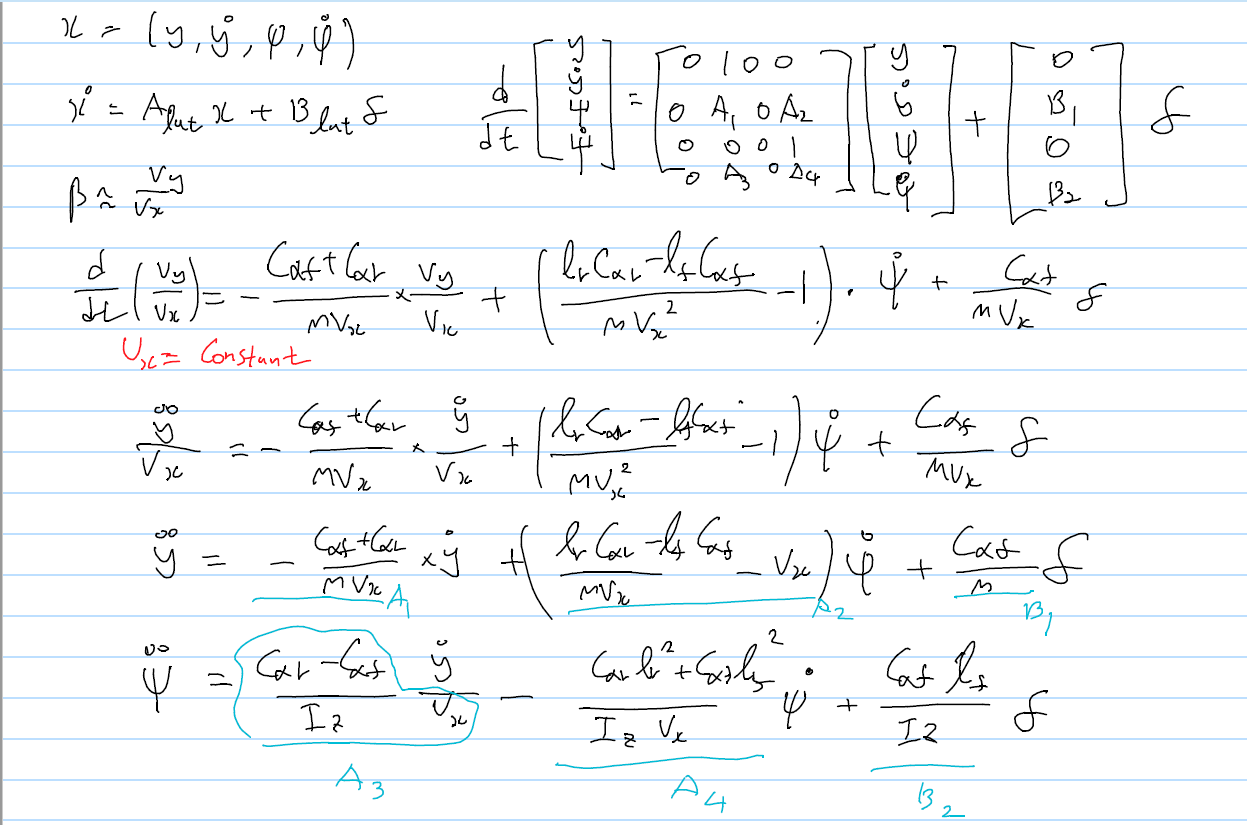 x = (y, ẏ, ψ, ψ̇)
ẋ = A_lat x + B_lat δ
d/dt [y; ẏ; ψ; ψ̇] = [0 1 0 0; 0 A₁ 0 A₂; 0 0 0 1; 0 A₃ 0 A₄] [y; ẏ; ψ; ψ̇] + [0; B₁; 0; B₂] δ
β ≈ Vy/Vx
d/dt (Vy/Vx) = - (Cαf + Cαr)/(mVx) × Vy/Vx + ((lr Cαr - lf Cαf)/(mVx²) - 1) · ψ̇ + Cαf/(mVx) δ
Vx = Constant
ÿ/Vx = - (Cαf + Cαr)/(mVx) × ẏ/Vx + ((lr Cαr - lf Cαf)/(mVx²) - 1) ψ̇ + Cαf/(mVx) δ
ÿ = - (Cαf + Cαr)/(mVx) × ẏ + ((lr Cαr - lf Cαf)/(mVx) - Vx) ψ̇ + Cαf/m δ
A₁ A₂ B₁
ψ̈ = (Cαr - Cαf)/Iz ẏ/Vx - (Cαr lr² + Cαf lf²)/(Iz Vx) ψ̇ + (Cαf lf)/Iz δ
A₃ A₄ B₂